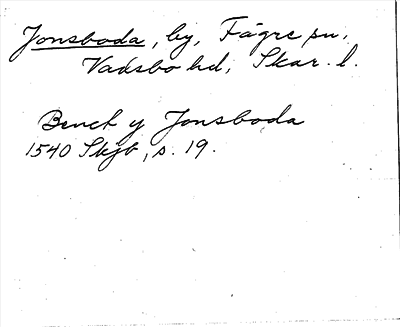 Jonsboda, by, Fägre sn,
Vadsbo hd, Skar. l.
Benct y Jonsboda
1540 Skjb, s. 19.